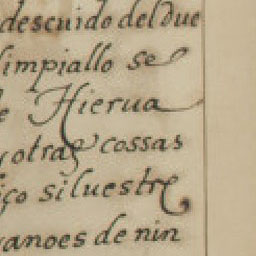 descuido del due
limpiallo se
e Hierua
y otras cossas
iço siluestre,
uanoes de nin